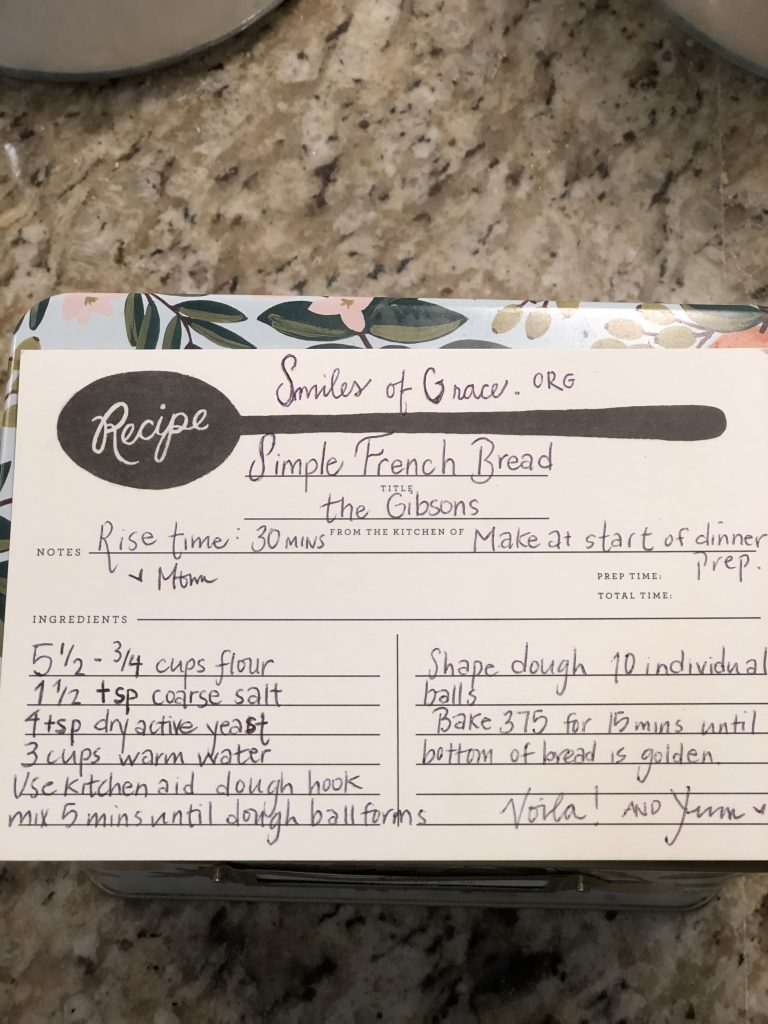 Smiles of Grace. ORG
Recipe
Simple French Bread
TITLE
the Gibsons
FROM THE KITCHEN OF
NOTES Rise time: 30 MINS Make at start of dinner
prep.
Mom
PREP TIME:
TOTAL TIME:
INGREDIENTS
5 1/2 - 3/4 cups flour
1 1/2 tsp coarse salt
4 tsp dry active yeast
3 cups warm water
Use Kitchen aid dough hook
mix 5 mins until dough ball forms
Shape dough 10 individual
balls
Bake 375 for 15 mins until
bottom of bread is golden.
Voila! AND Yum